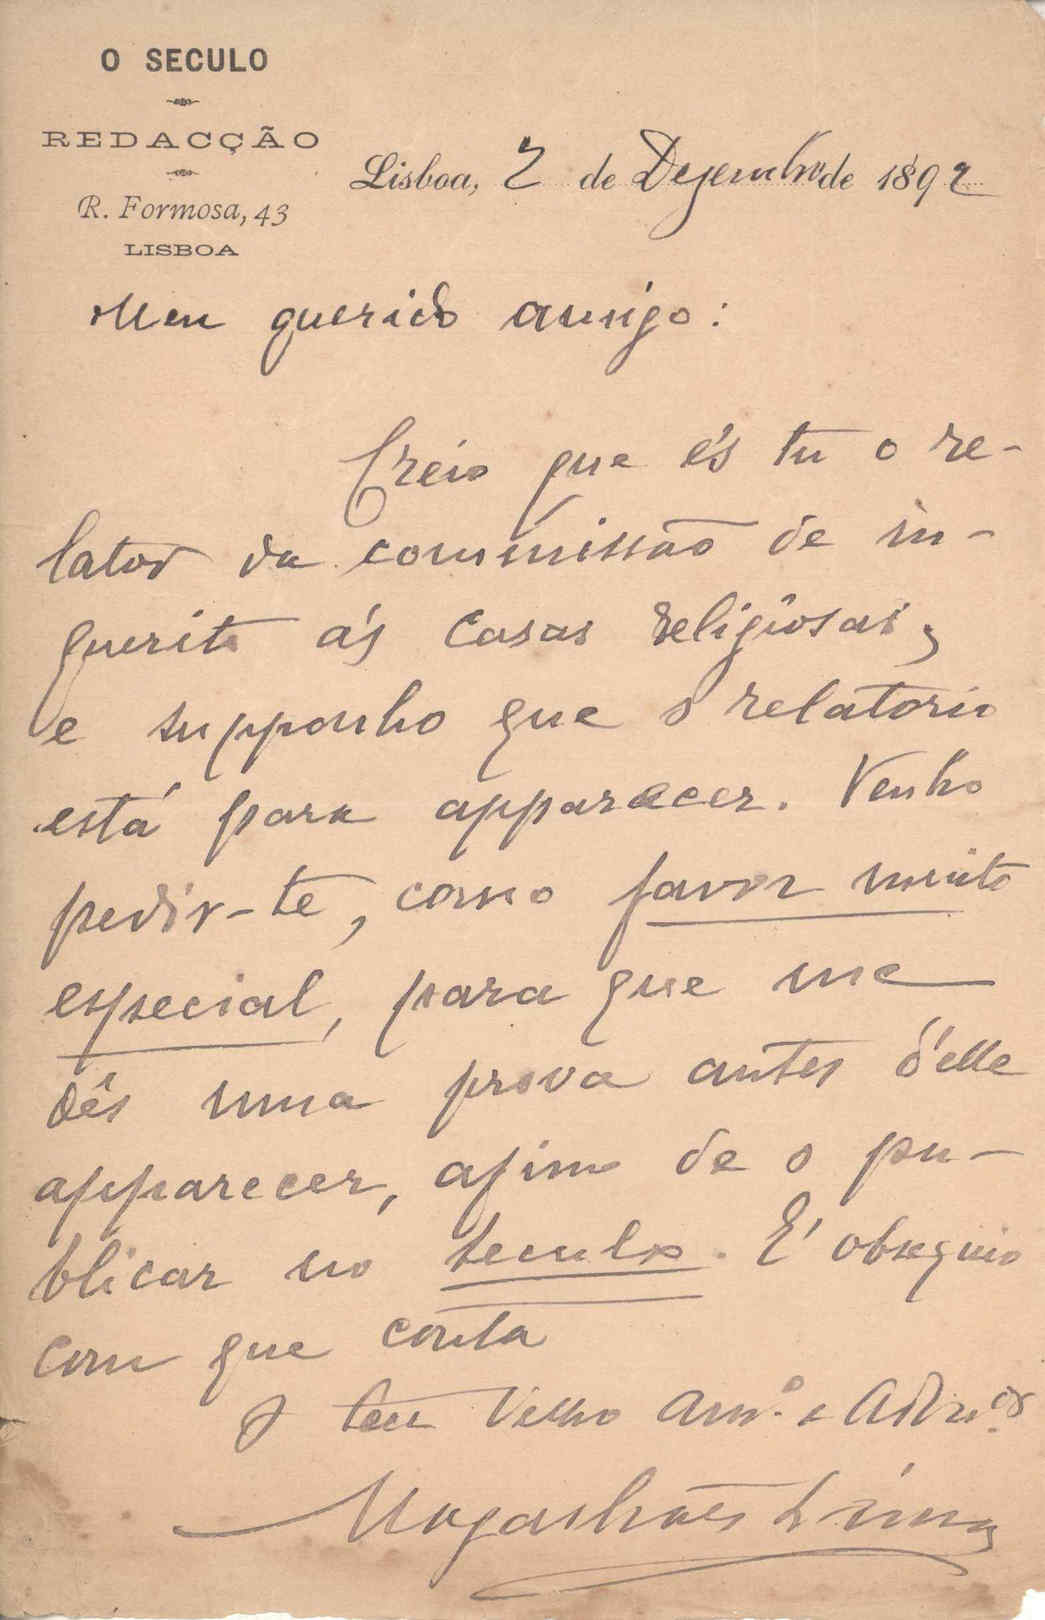 O SECULO
REDACÇÃO
R. Formosa, 43
LISBOA
Lisboa, 2 de Dezembro de 1892
Meu querido amigo:
Creio que és tu o re-
lator da commissão de in-
querito ás casas religiosas,
e supponho que o relatorio
está para apparecer. Venho
pedir-te, como favor muito
especial, para que me
dês uma prova antes d'elle
apparecer, afim de o pu-
blicar no seculo. É obsequio
com que conta
O teu velho am.º e admor.
Magalhães Lima